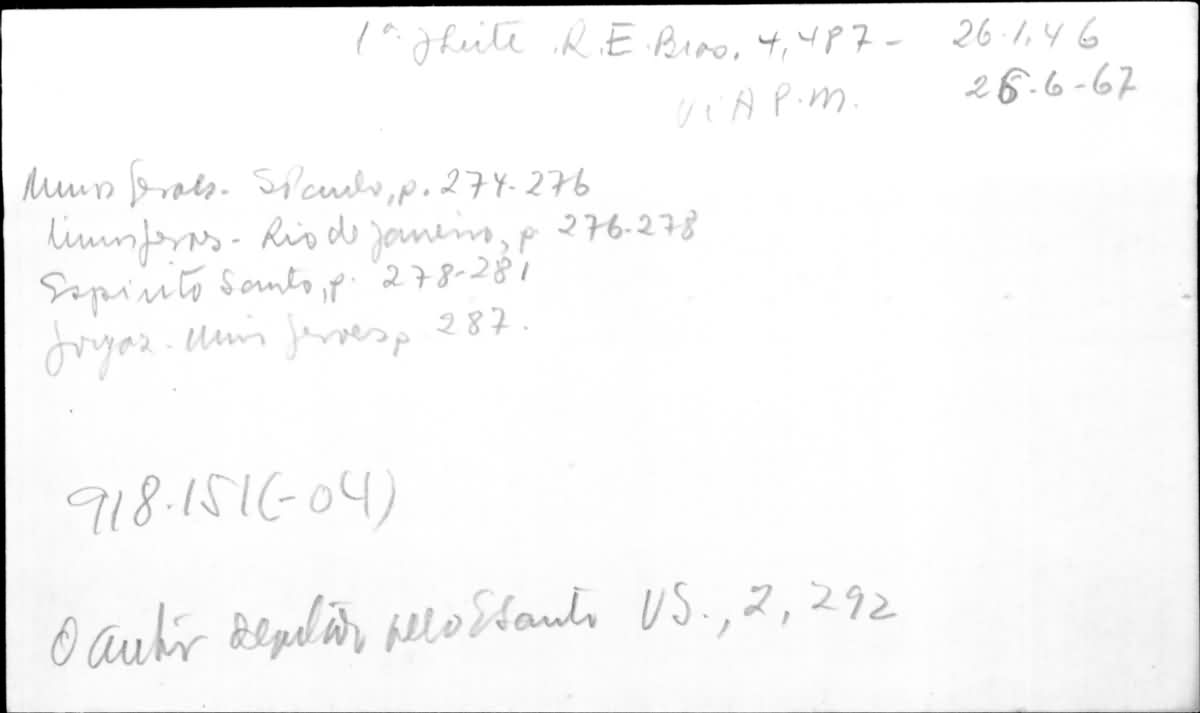 1ª R.E. Bras. 4,487- 26.1.46
V. A P.M. 26.6-67
Minas Geraes. S Paulo, p. 274-276
Minas Geraes - Rio de Janeiro, p 276-278
Espirito Santo, p. 278-281
Goyaz. Minas Geraes p 287.
918.151(-04)
O autor deputado pelo E Santo VS., 2, 292